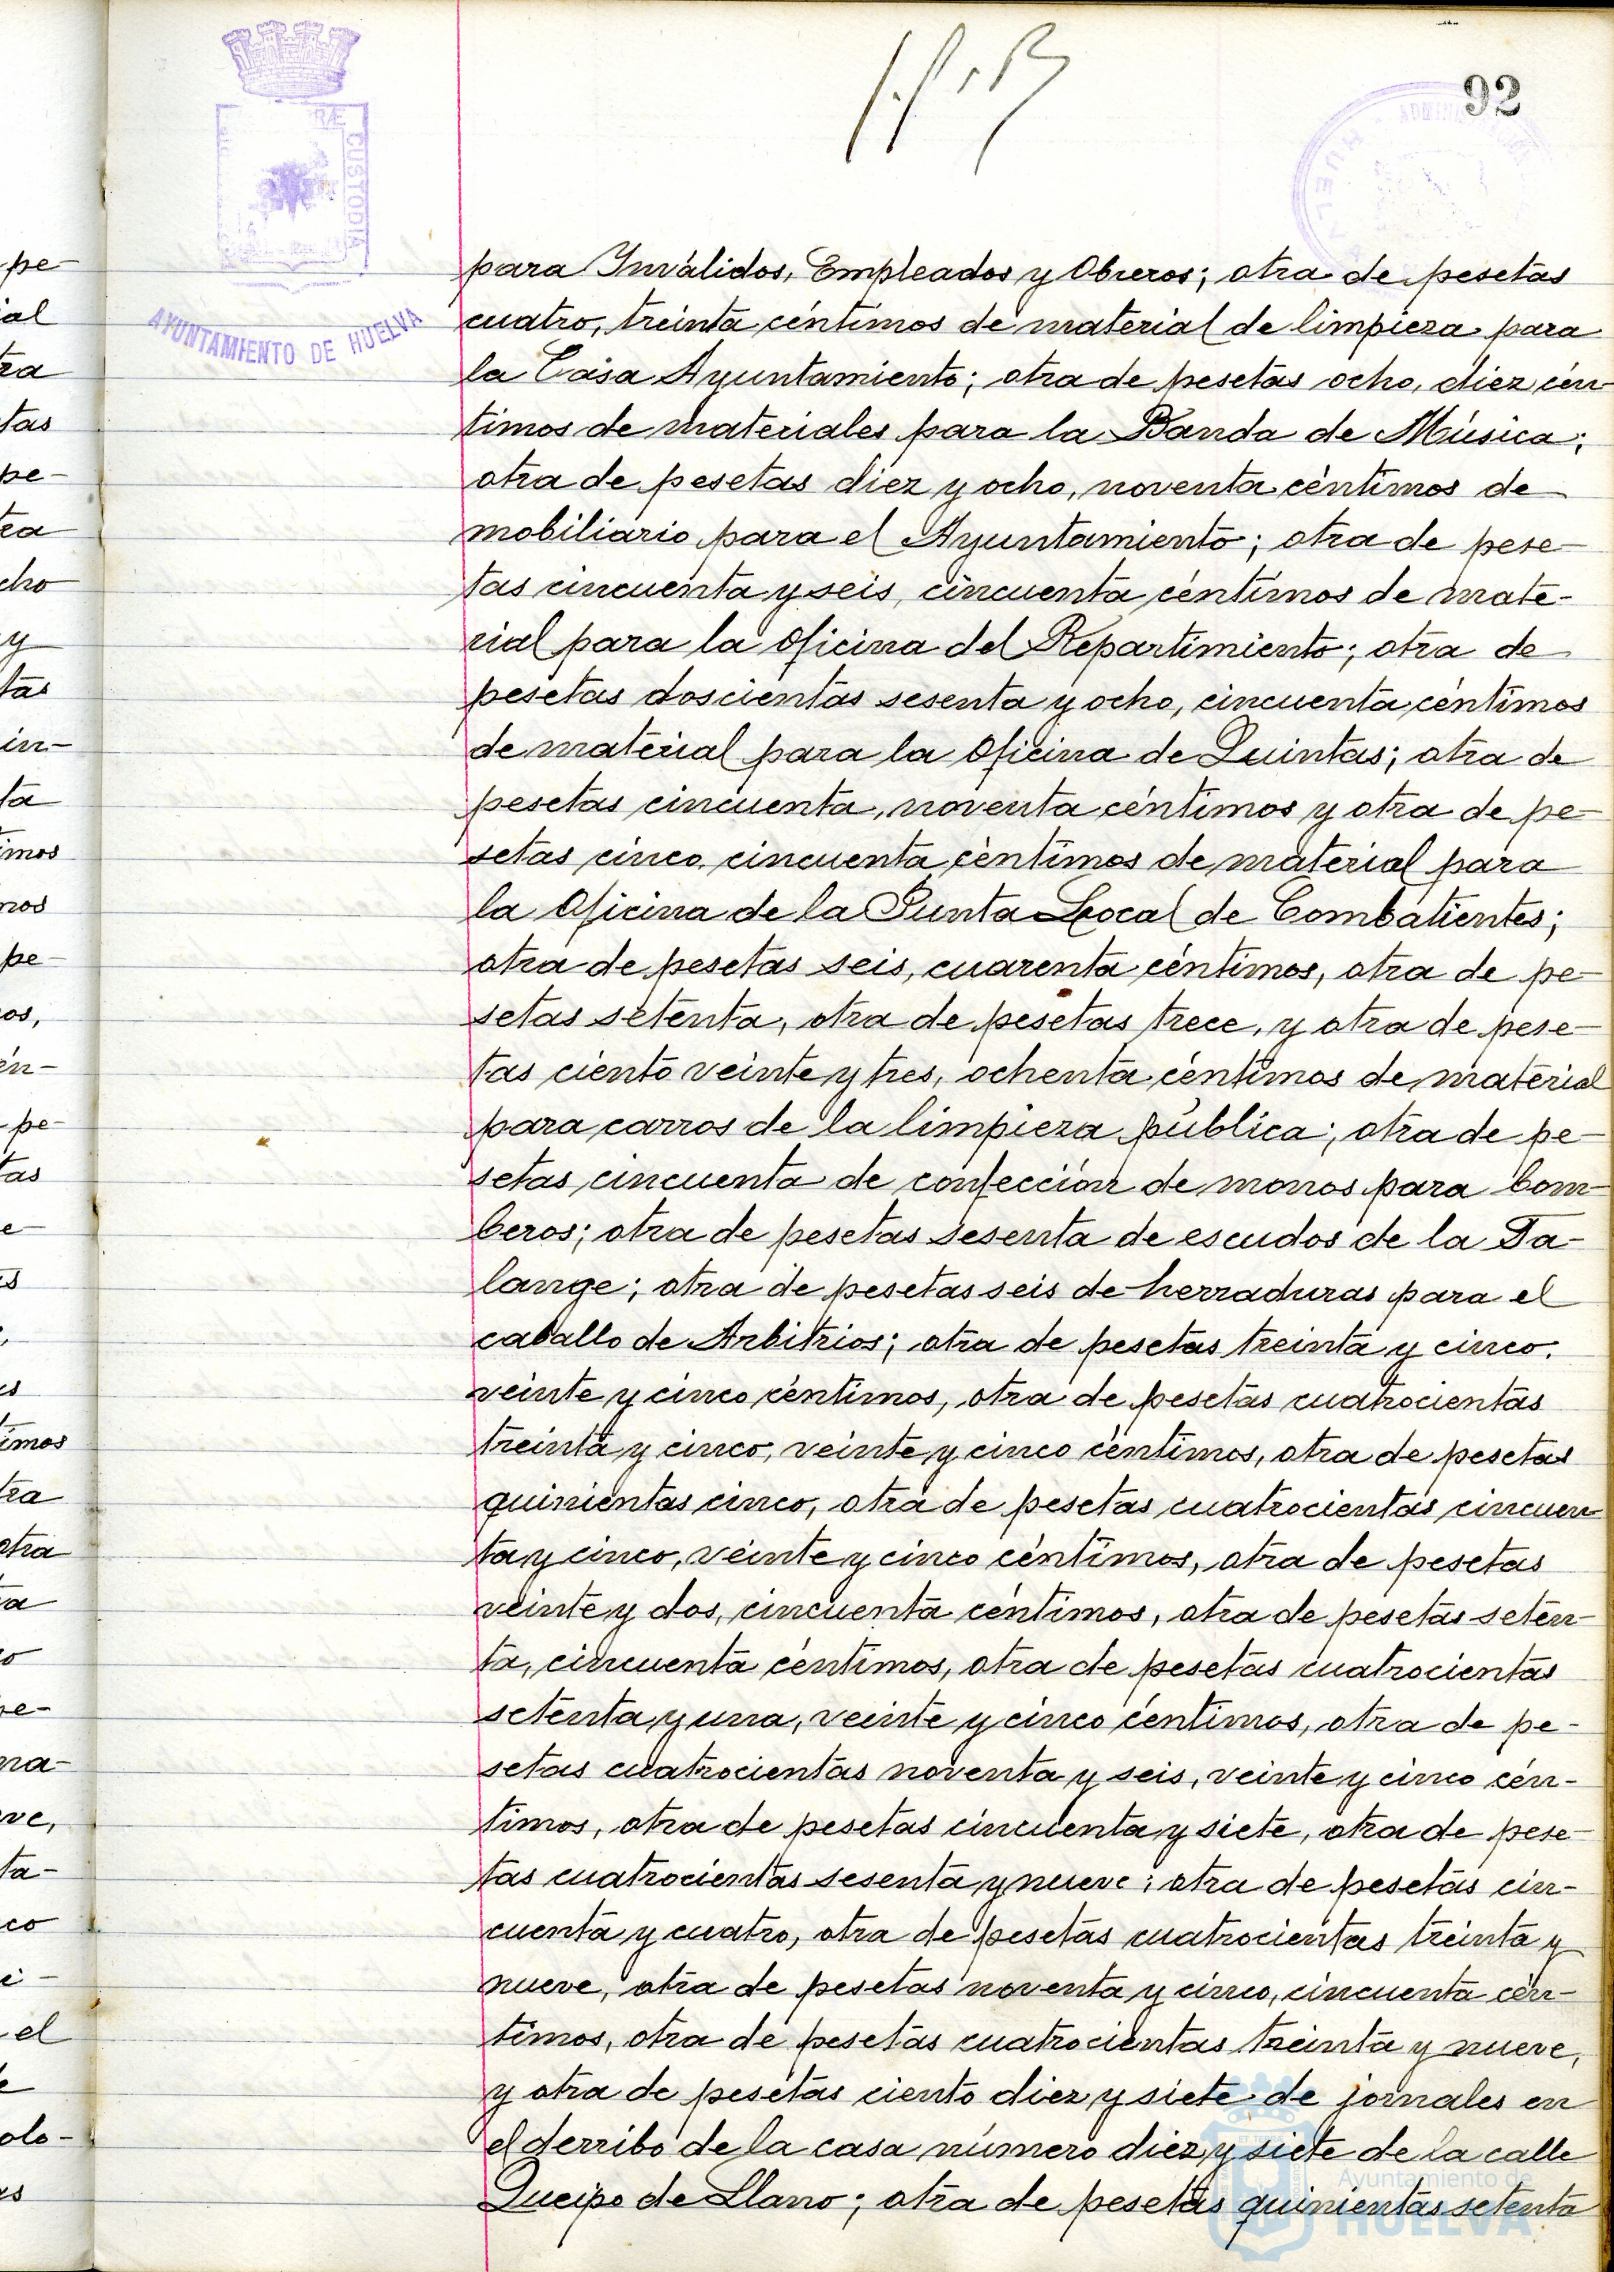 92
RÆ CUSTODIA
AYUNTAMIENTO DE HUELVA
para Inválidos, Empleados y Obreros; otra de pesetas
cuatro, treinta céntimos de material de limpieza para
la Casa Ayuntamiento; otra de pesetas ocho, diez cén-
timos de materiales para la Banda de Música;
otra de pesetas diez y ocho, noventa céntimos de
mobiliario para el Ayuntamiento; otra de pese-
tas cincuenta y seis, cincuenta céntimos de mate-
rial para la oficina del Repartimiento; otra de
pesetas doscientas sesenta y ocho, cincuenta céntimos
de material para la oficina de Quintas; otra de
pesetas cincuenta, noventa céntimos y otra de pe-
setas cinco, cincuenta céntimos de material para
la Oficina de la Junta Local de Combatientes;
otra de pesetas seis, cuarenta céntimos, otra de pe-
setas setenta, otra de pesetas trece, y otra de pese-
tas ciento veinte y tres, ochenta céntimos de material
para carros de la limpieza pública; otra de pe-
setas cincuenta de confección de monos para bom-
beros; otra de pesetas sesenta de escudos de la Fa-
lange; otra de pesetas seis de herraduras para el
caballo de Arbitrios; otra de pesetas treinta y cinco,
veinte y cinco céntimos, otra de pesetas cuatrocientas
treinta y cinco, veinte y cinco céntimos, otra de pesetas
quinientas cinco, otra de pesetas cuatrocientas cincuen
ta y cinco, veinte y cinco céntimos, otra de pesetas
veinte y dos, cincuenta céntimos, otra de pesetas seten-
ta, cincuenta céntimos, otra de pesetas cuatrocientas
setenta y una, veinte y cinco céntimos, otra de pe-
setas cuatrocientas noventa y seis, veinte y cinco cén-
timos, otra de pesetas cincuenta y siete, otra de pese-
tas cuatrocientas sesenta y nueve; otra de pesetas cin-
cuenta y cuatro, otra de pesetas cuatrocientas treinta y
nueve, otra de pesetas noventa y cinco, cincuenta cén-
timos, otra de pesetas cuatrocientas treinta y nueve,
y otra de pesetas ciento diez y siete de jornales en
el derribo de la casa número diez y siete de la calle
Queipo de Llano; otra de pesetas quinientas setenta
Ayuntamiento de
HUELVA